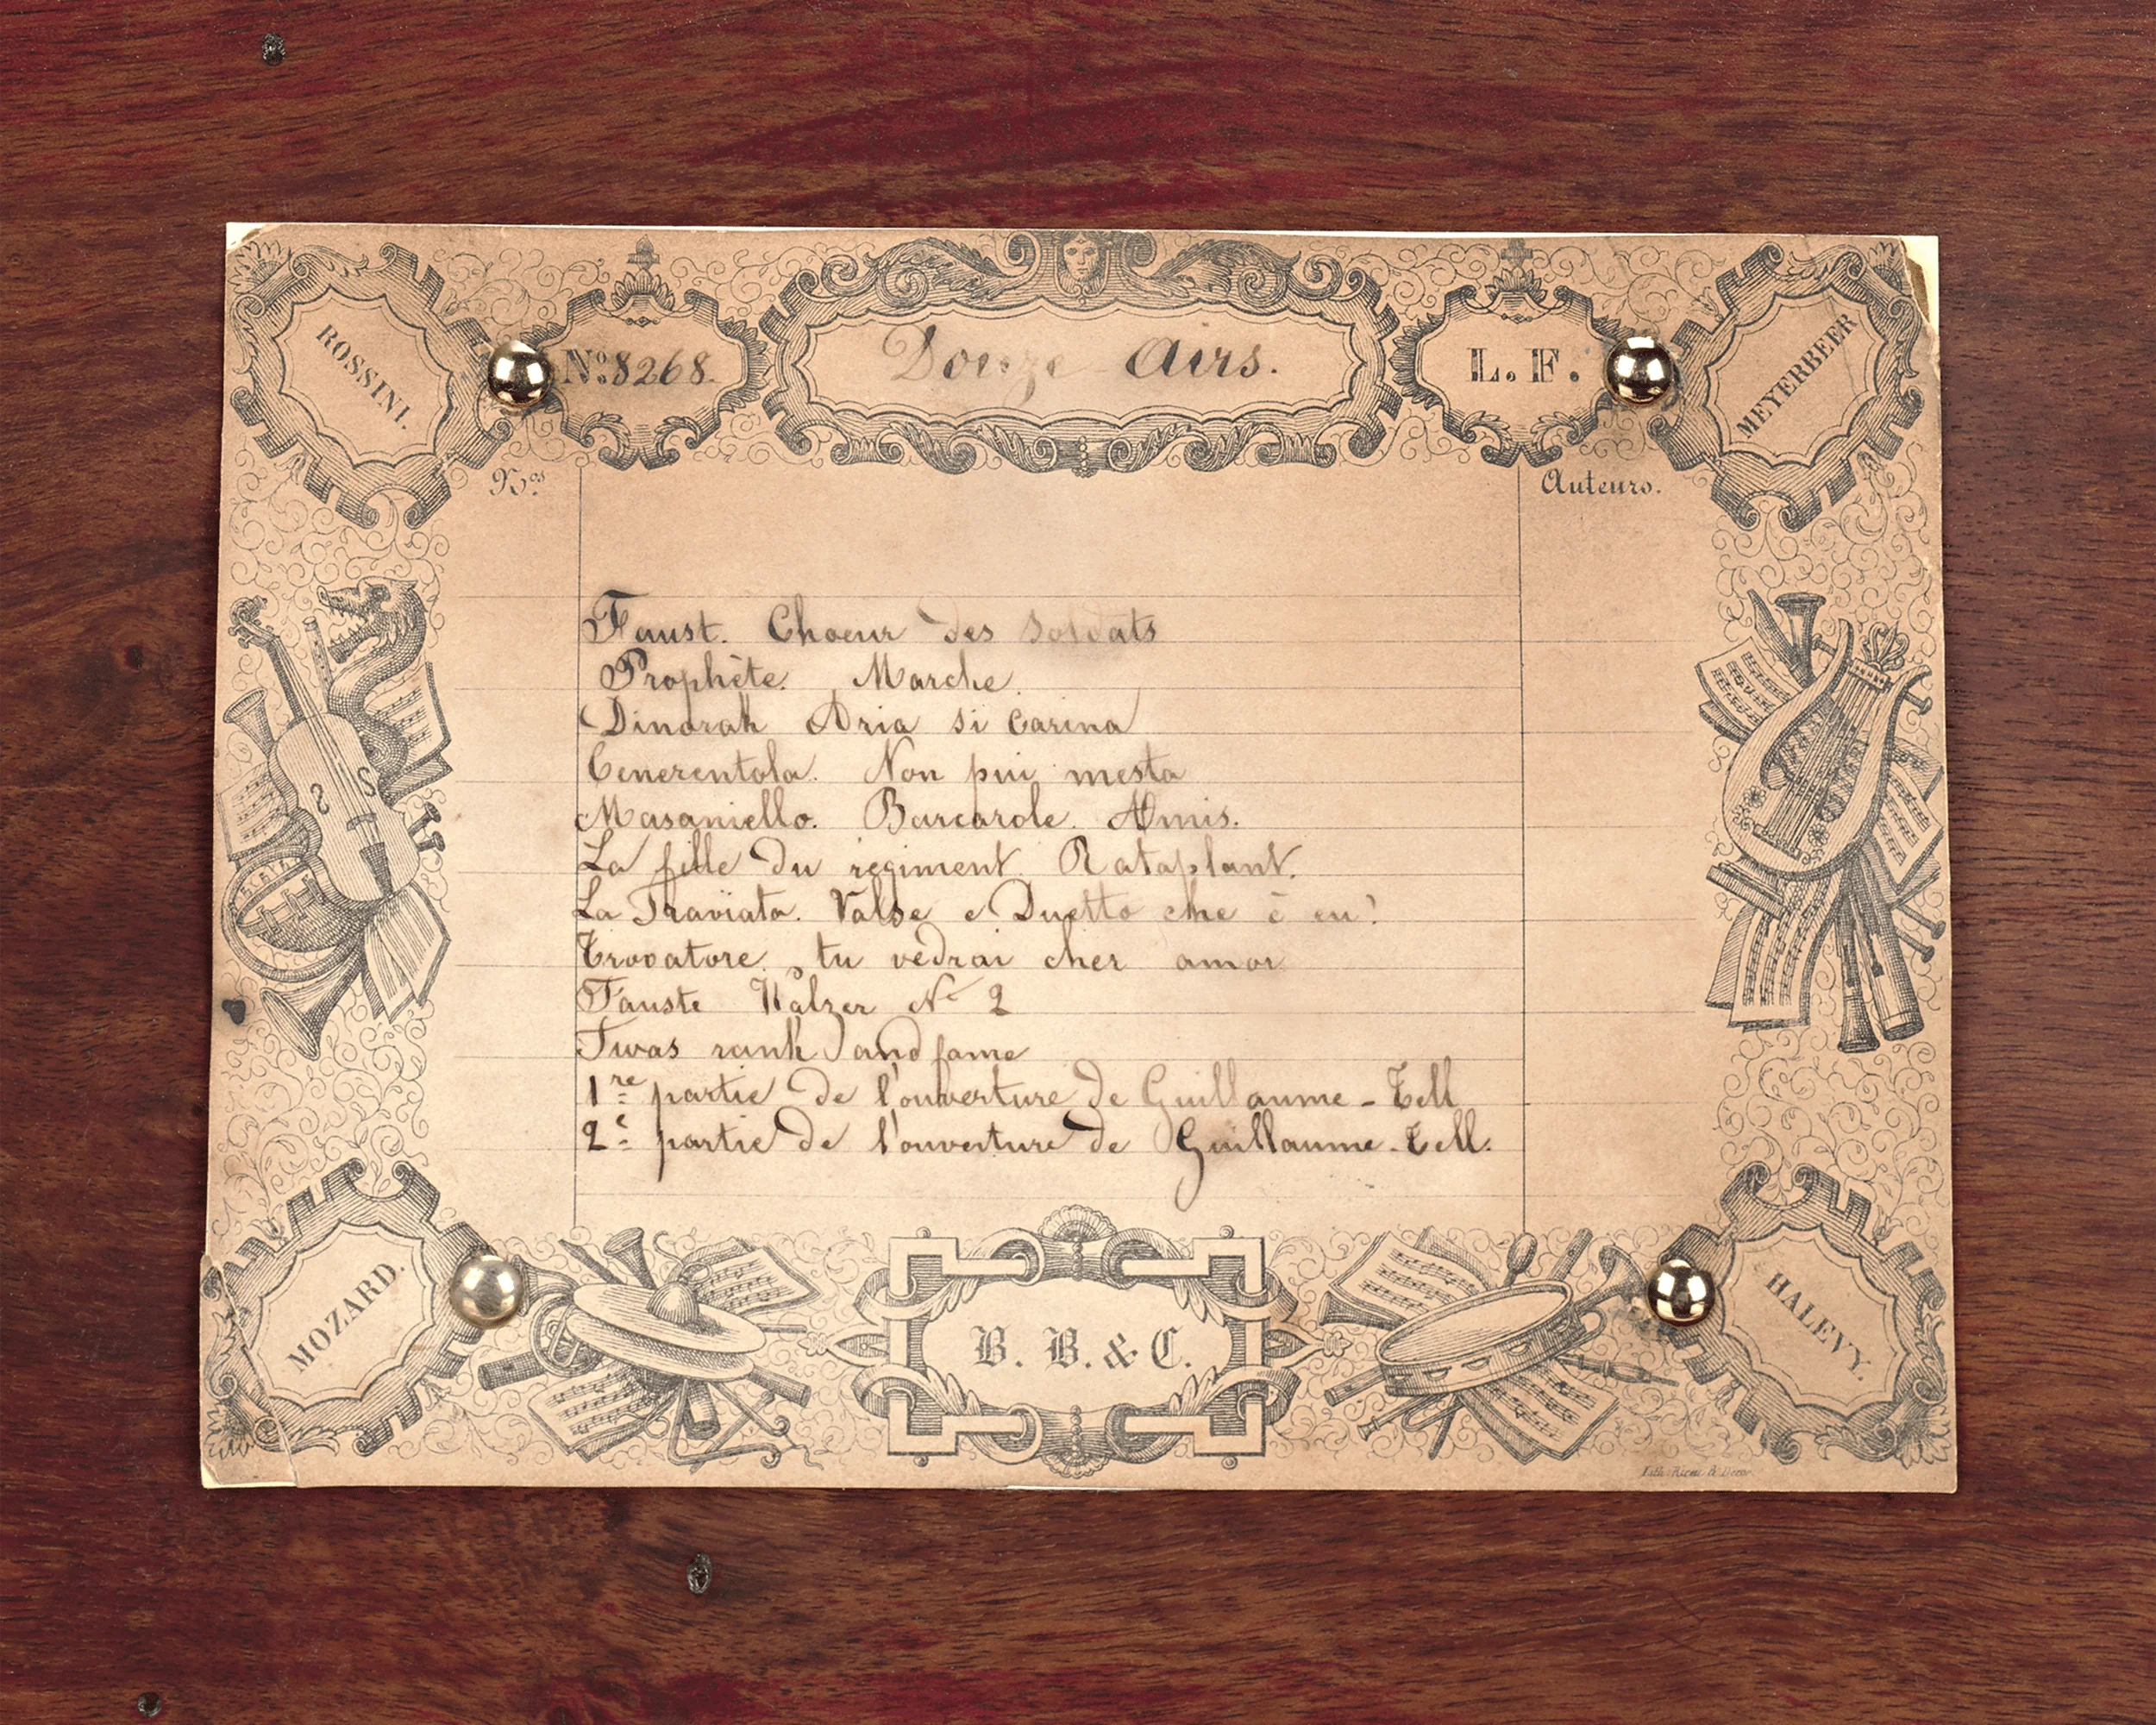 ROSSINI.
Nº 8268.
Douze Airs.
L. F.
MEYERBEER
Nos
Auteurs.
Faust. Choeur des Soldats
Prophète. Marche.
Dinorah Aria si carina
Cenerentola. Non piu mesta
Masaniello. Barcarole. Amis.
La fille du regiment. Rataplant.
La Traviata. Valse e Duetto che è eu?
Trovatore. tu vedrai cher amor
Fauste Walzer No 2
Twas rank and fame
1re partie de l'ouverture de Guillaume-Tell
2e partie de l'ouverture de Guillaume-Tell.
MOZARD.
B. B. & C.
HALEVY.
Lith.